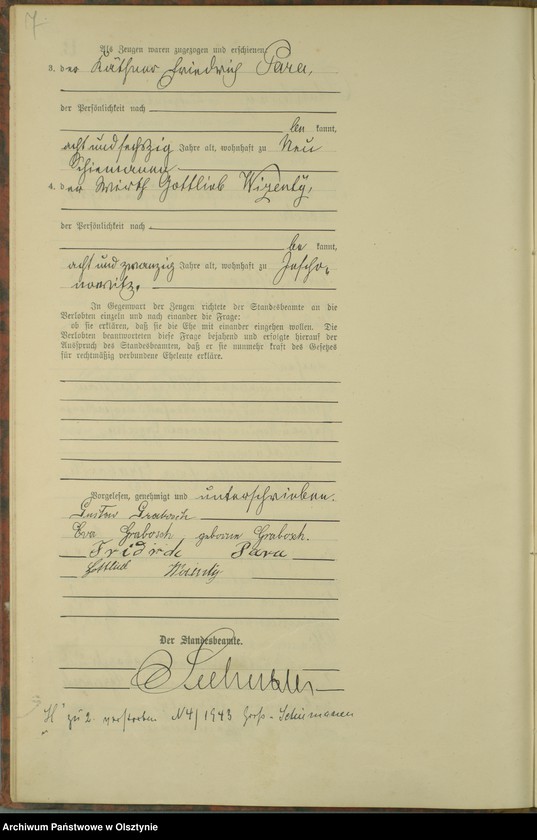 7.
Als Zeugen waren zugezogen und erschienen:
3. der Käthner Friedrich Para,
der Persönlichkeit nach
be kannt,
acht und sechszig Jahre alt, wohnhaft zu Neu
Schiemanen
4. der Wirth Gottlieb Wizenty,
der Persönlichkeit nach
be kannt,
acht und zwanzig Jahre alt, wohnhaft zu Jescho-
nowitz.
In Gegenwart der Zeugen richtete der Standesbeamte an die
Verlobten einzeln und nach einander die Frage:
ob sie erklären, daß sie die Ehe mit einander eingehen wollen. Die
Verlobten beantworteten diese Frage bejahend und erfolgte hierauf der
Ausspruch des Standesbeamten, daß er sie nunmehr kraft des Gesetzes
für rechtmäßig verbundene Eheleute erkläre.
Vorgelesen, genehmigt und unterschrieben.
Gustav Grabosch
Eva Grabosch geborene Grabosch.
Fridrch Para
Gottlieb Wizenty
Der Standesbeamte.
"H" zu 2. verstorben N 4/1943 Groß-Schiemanen
Archiwum Państwowe w Olsztynie